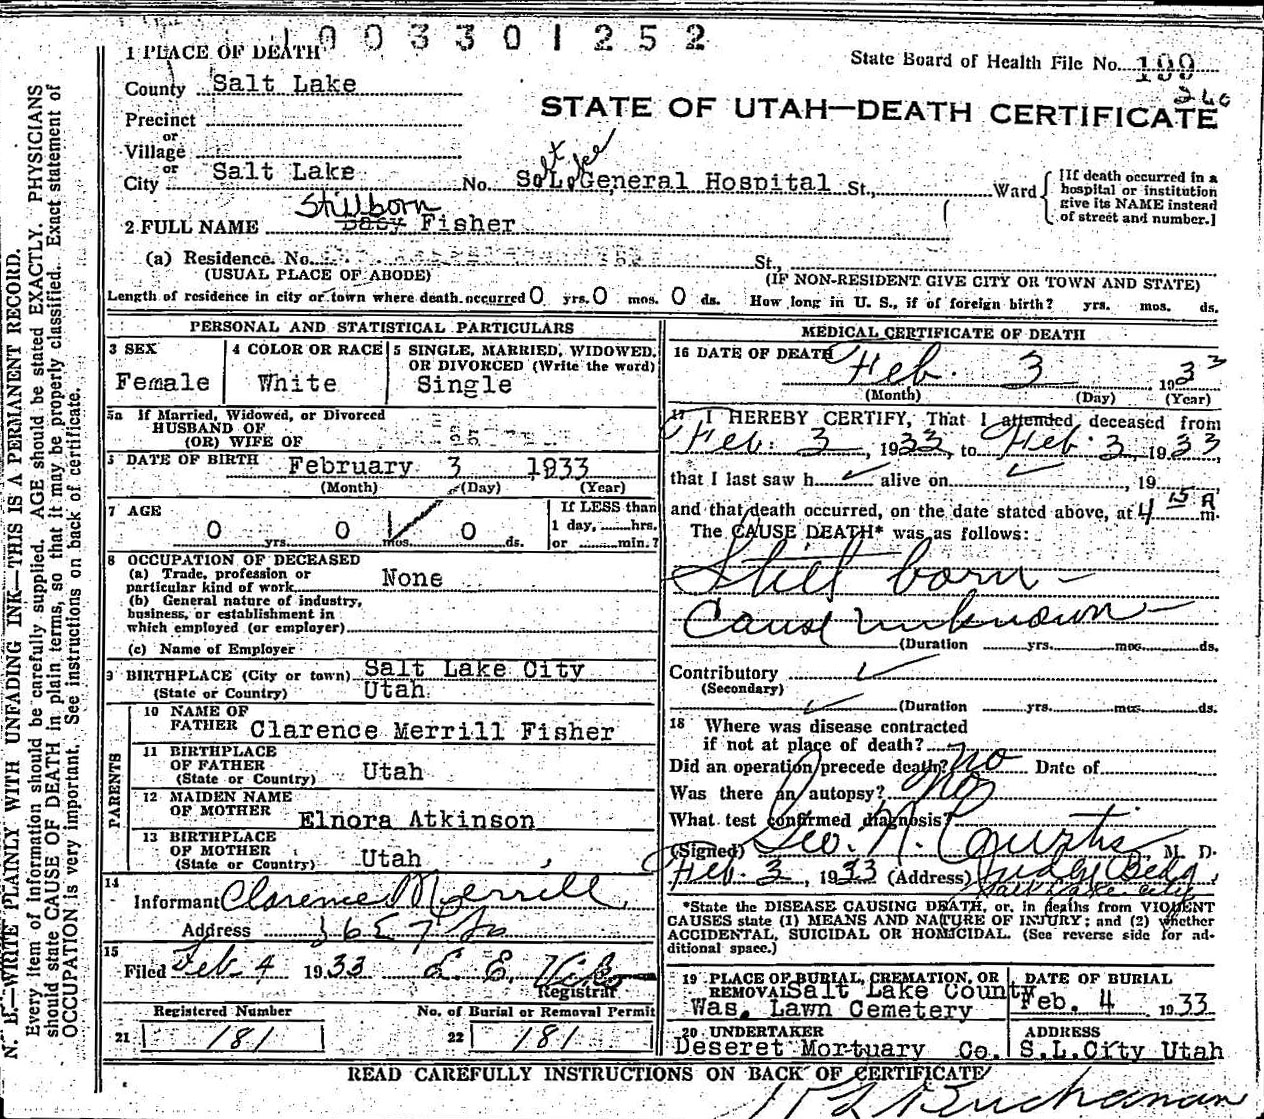 1003301252
1 PLACE OF DEATH
State Board of Health File No. 199
260
County Salt Lake
STATE OF UTAH—DEATH CERTIFICATE
Precinct
or
Village
or
City Salt Lake No. S.L. General Hospital St., Ward
Salt Lake
[If death occurred in a
hospital or institution
give its NAME instead
of street and number.]
Stillborn
2 FULL NAME Baby Fisher
(a) Residence. No. St.
(USUAL PLACE OF ABODE) (IF NON-RESIDENT GIVE CITY OR TOWN AND STATE)
Length of residence in city or town where death occurred 0 yrs. 0 mos. 0 ds. How long in U. S., if of foreign birth? yrs. mos. ds.
N. B.—WRITE PLAINLY WITH UNFADING INK—THIS IS A PERMANENT RECORD.
Every item of information should be carefully supplied. AGE should be stated EXACTLY. PHYSICIANS
should state CAUSE OF DEATH in plain terms, so that it may be properly classified. Exact statement of
OCCUPATION is very important. See instructions on back of certificate.
PERSONAL AND STATISTICAL PARTICULARS
3 SEX 4 COLOR OR RACE 5 SINGLE, MARRIED, WIDOWED,
OR DIVORCED (Write the word)
Female White Single
5a If Married, Widowed, or Divorced
HUSBAND OF
(OR) WIFE OF
DATE OF BIRTH February 3 1933
(Month) (Day) (Year)
7 AGE If LESS than
1 day, hrs.
0 yrs. 0 mos. 0 ds. or min.?
8 OCCUPATION OF DECEASED
(a) Trade, profession or
particular kind of work None
(b) General nature of industry,
business, or establishment in
which employed (or employer)
(c) Name of Employer
9 BIRTHPLACE (City or town) Salt Lake City
(State or Country) Utah
PARENTS
10 NAME OF
FATHER Clarence Merrill Fisher
11 BIRTHPLACE
OF FATHER
(State or Country) Utah
12 MAIDEN NAME
OF MOTHER Elnora Atkinson
13 BIRTHPLACE
OF MOTHER
(State or Country) Utah
14
Informant Clarence Merrill
Address 36 E 7 So
15
Filed Feb 4 1933 L. E.
Registrar
Registered Number No. of Burial or Removal Permit
21 181 22 181
MEDICAL CERTIFICATE OF DEATH
16 DATE OF DEATH Feb. 3 1933
(Month) (Day) (Year)
17 I HEREBY CERTIFY, That I attended deceased from
Feb. 3, 1933, to Feb. 3, 1933,
that I last saw h alive on , 19 ,
and that death occurred, on the date stated above, at 4 15 A m.
The CAUSE DEATH* was as follows:
Still born —
Cause unknown —
(Duration yrs. mos. ds.
Contributory
(Secondary)
(Duration yrs. mos. ds.
18 Where was disease contracted
if not at place of death?
Did an operation precede death? no Date of
Was there an autopsy? no
What test confirmed diagnosis?
(Signed) Geo. N. Curtis M. D.
Feb. 3, 1933 (Address) Judge Bldg,
Salt Lake City
*State the DISEASE CAUSING DEATH, or, in deaths from VIOLENT
CAUSES state (1) MEANS AND NATURE OF INJURY; and (2) whether
ACCIDENTAL, SUICIDAL OR HOMICIDAL. (See reverse side for ad-
ditional space.)
19 PLACE OF BURIAL, CREMATION, OR DATE OF BURIAL
REMOVAL Salt Lake County
Was. Lawn Cemetery Feb. 4 1933
20 UNDERTAKER ADDRESS
Deseret Mortuary Co. S.L.City Utah
READ CAREFULLY INSTRUCTIONS ON BACK OF CERTIFICATE
Buchanan